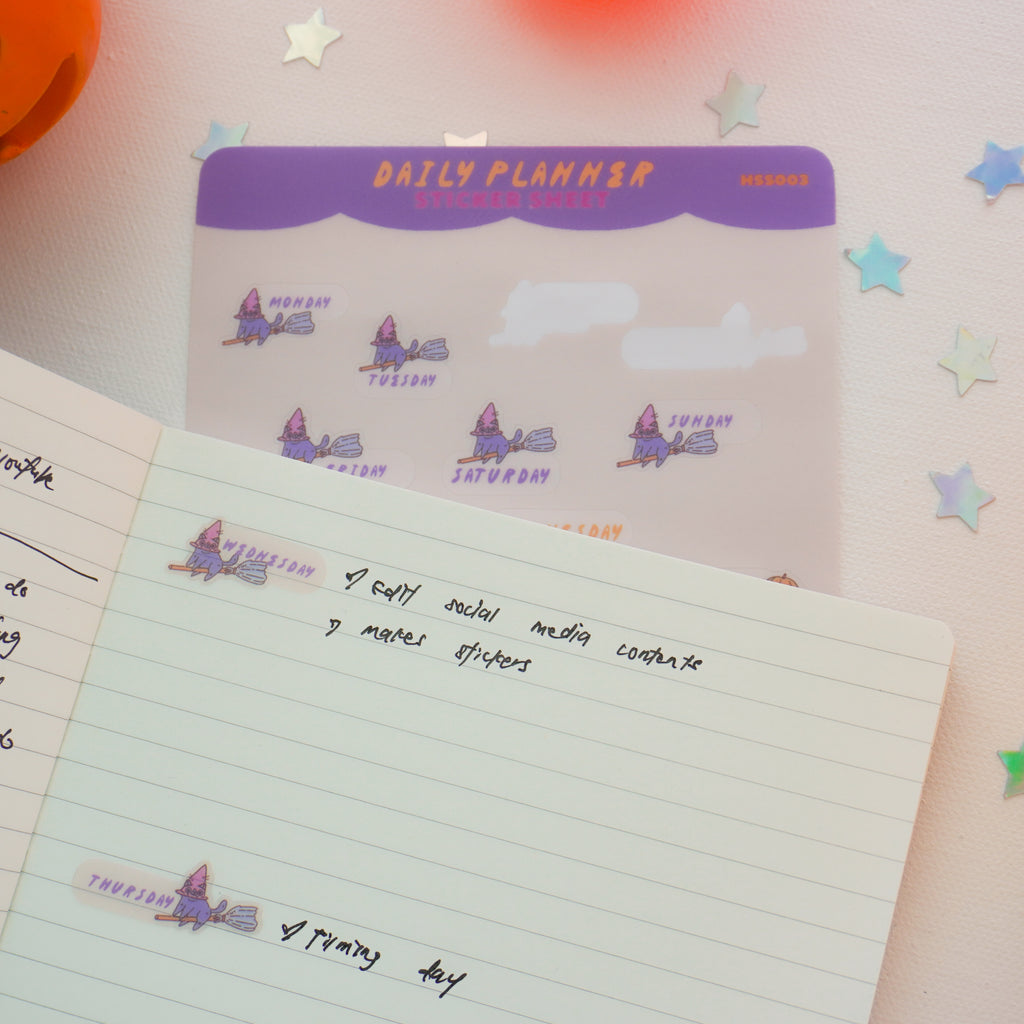 DAILY PLANNER
STICKER SHEET
HSS003
MONDAY
TUESDAY
FRIDAY
SATURDAY
SUNDAY
SDAY
youtube
do
WEDNESDAY
edit social media contents
makes stickers
THURSDAY
filming day